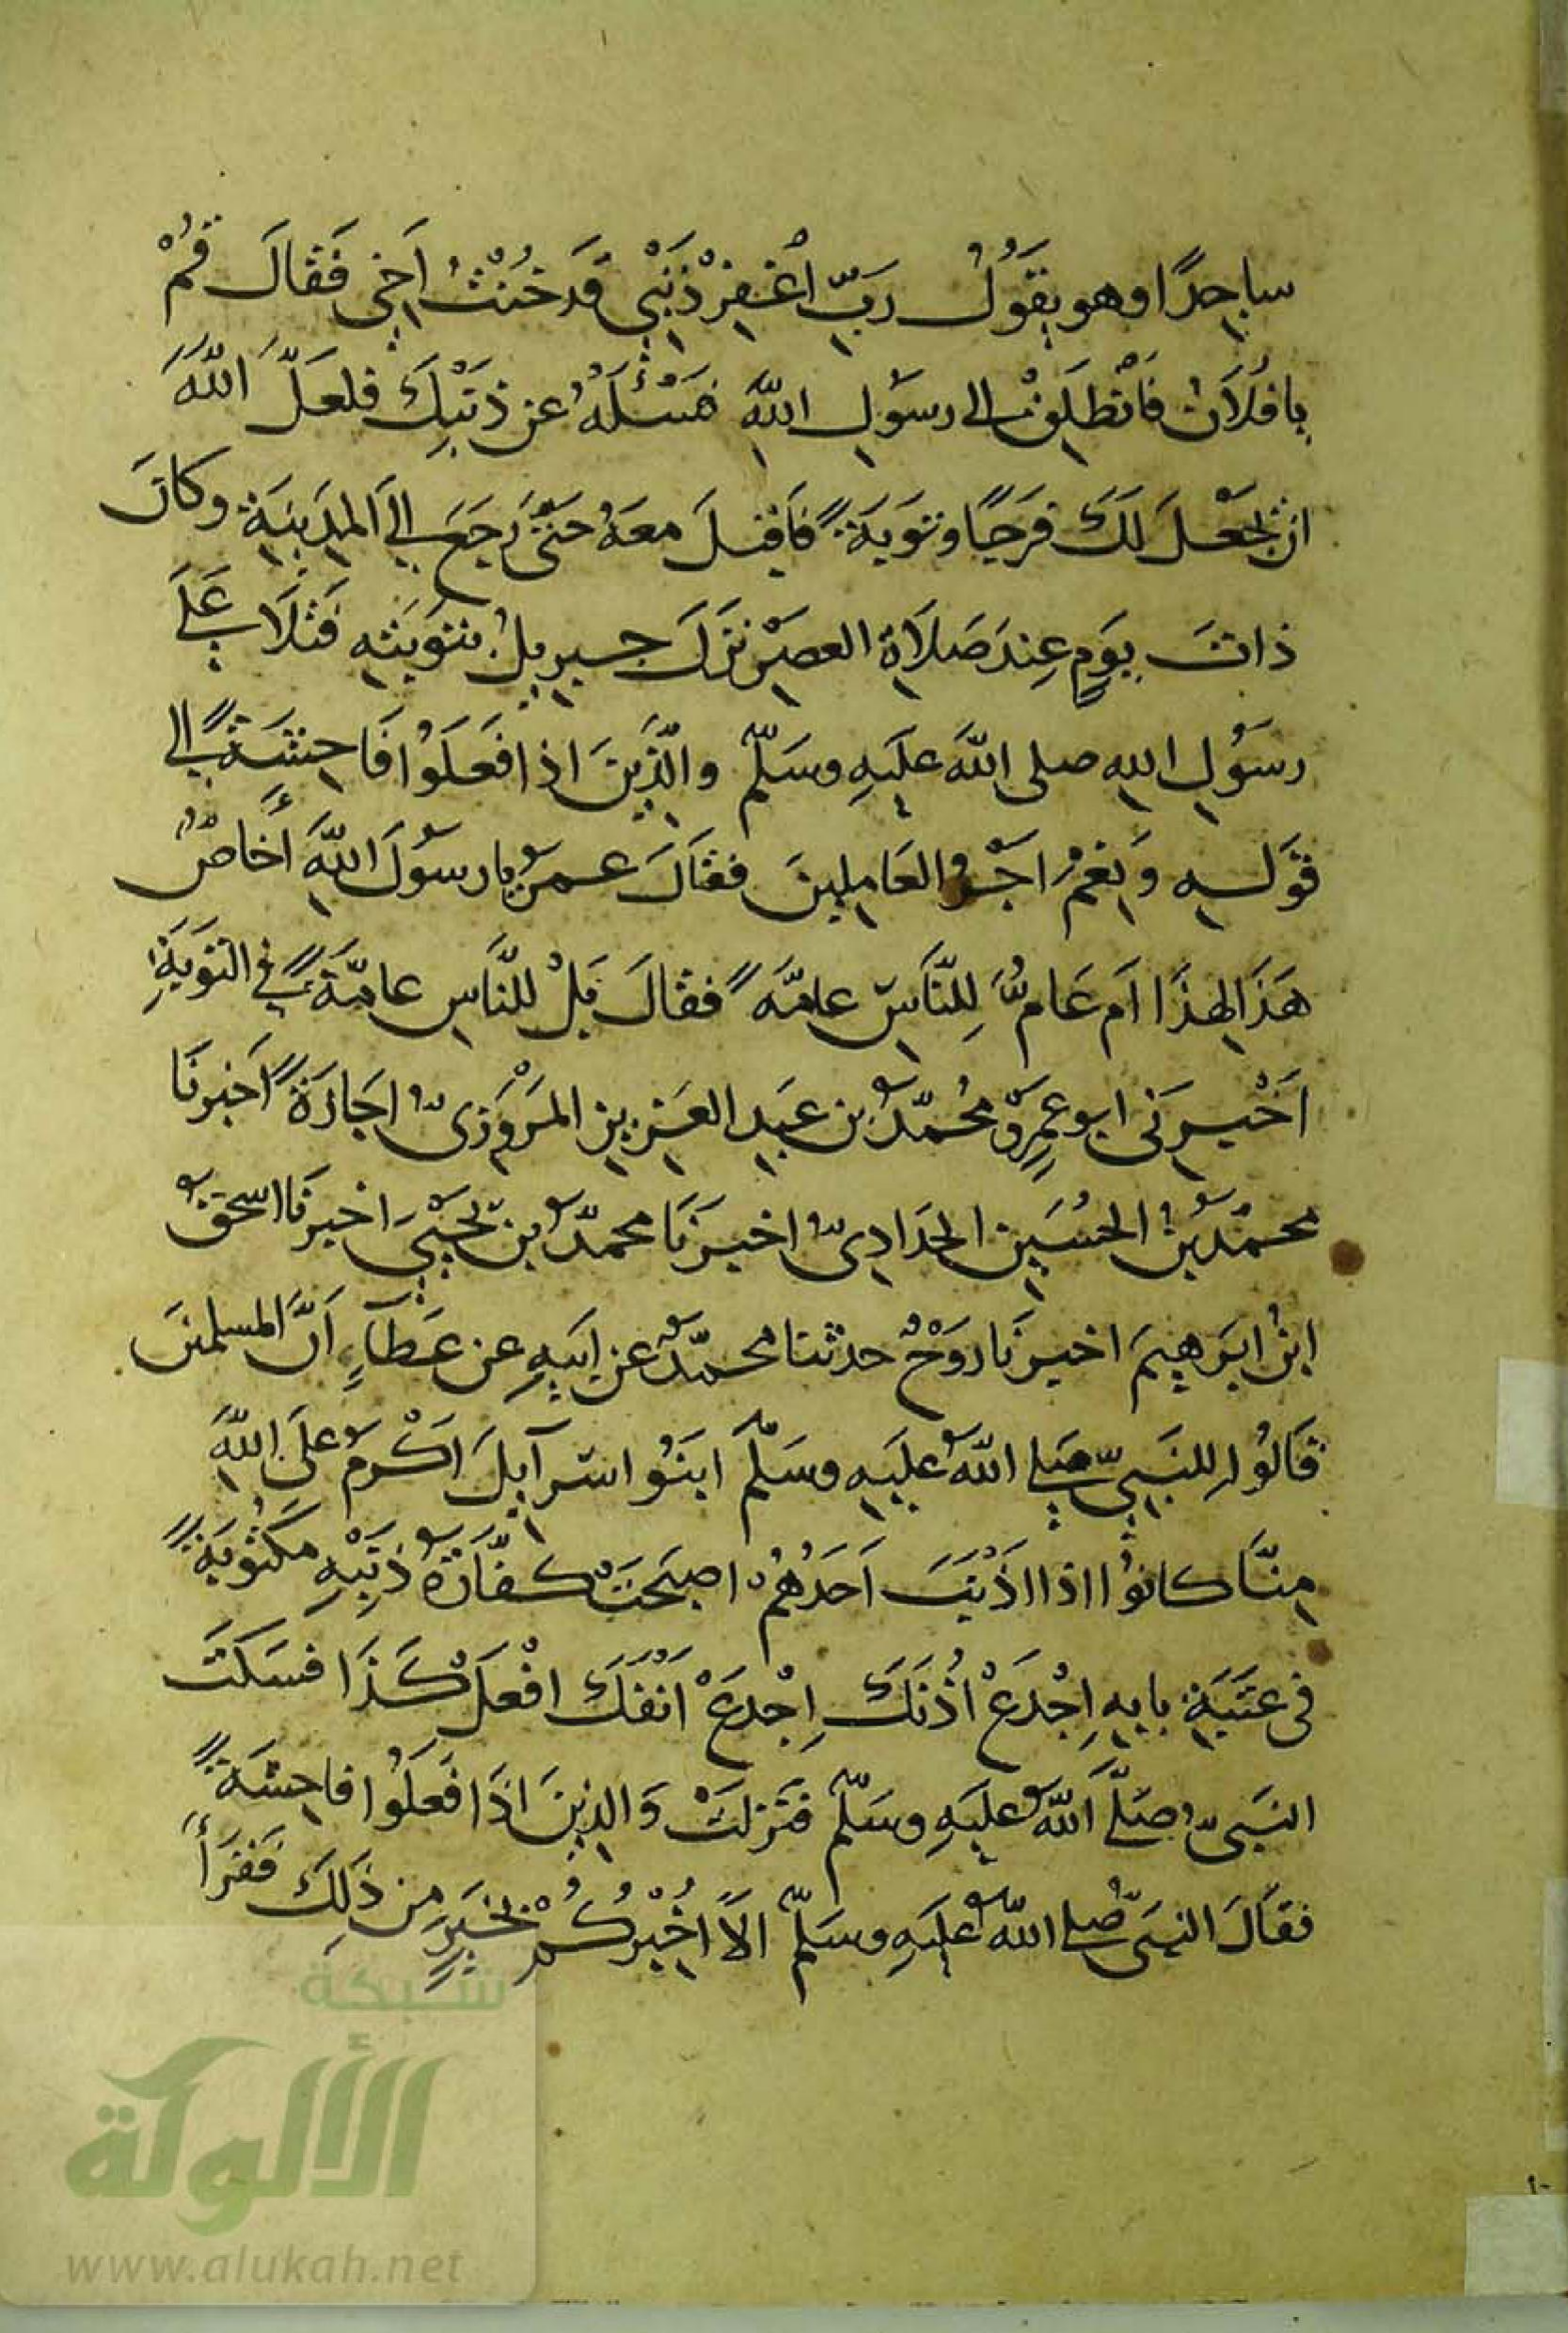 ساجدًا وهو يقَوُلُ رَبِّ اغْفِرْ ذَنْبِي قَدخُنْتُ اَخِي فَقَالَ قُمْ
يا فُلاَنُ فَانْطَلِقْ الى رسوُلِ اللهِ فَسْئَلْهُ عن ذَنْبِكَ فلعَلَّ اللهَ
ان يَجْعَلَ لَكَ فَرَجًا وتَوبَةً فَاَقبَلَ معَهُ حَتّى رَجَعَ الىَ المدِينَةِ وكانَ
ذاتَ يَومٍ عِندَ صَلاَةِ العصرِ نَزَلَ جبريلُ بتَوبَتِهِ فَتَلاَ عَلَى
رسَوُلِ اللهِ صلى اللهُ علَيهِ وسَلّم والَّذِينَ اذا فَعَلوُا فَاحِشَةً الى
قَولِهِ وَنِعْمَ اَجْرُ العَامِلينَ فقَالَ عمَرُ يا رسوُلَ اللهِ أخَاصٌّ
هَذَا لِهذَا اَم عَامٌّ لِلنَّاسِ عامّةً فقالَ بَلْ للنَّاسِ عامّةً في التَوبَةِ
اَخْبرَنى ابو عمرٍو محُمّدُ بن عَبدِ العَزيزِ المَرْوَزىُّ اجَازَةً اَخبرنَا
محمّدُ بنُ الحُسَينِ الحدَادِىُّ اخبرَنَا محمّدُ بن يَحْيىَ اخبرنَا اسحقُ
ابنُ ابرَهِيمَ اخبرنَا رَوْحٌ حدثنا محمّدٌ عن اَبيهِ عن عَطَآءٍ اَنَّ المسلمينَ
قَالوُا للنَبىِّ صَلى اللهُ علَيهِ وسَلّمَ ابَنُو اسرآيلَ اَكْرَمُ علىَ اللهِ
مِنّاَ كانوُا اذا اَذْنَبَ اَحَدُهُمْ اصبَحَتْ كفّارَةُ ذَنبِهِ مكتُوبَةً
فى عتَبَةِ بابِهِ اِجْدَعْ اُذُنَكَ اِجْدَعْ اَنْفَكَ افْعَلْ كَذَا فسَكَتَ
النبَىُّ صَلَّى اللهُ علَيهِ وسَلّم فنَزلَتْ وَالذِينَ اذَا فَعلَوُا فاحِشَةً
فقَالَ النبَىُّ صَلى اللهُ علَيهِ وسَلّم الاَ اُخْبِرُكُمْ بخَيرٍ من ذَلِكَ فَقَرَأَ
شبكة
الألوكة
www.alukah.net